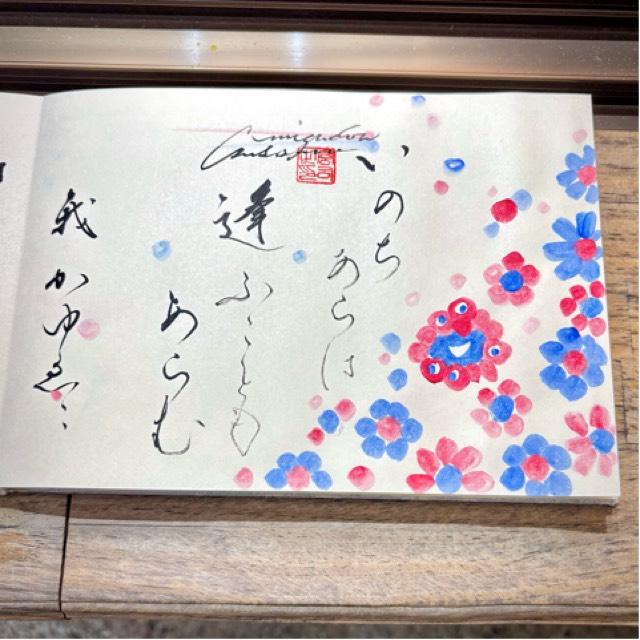 いのち
あらは
逢ふことも
あらむ
我かゆゑに